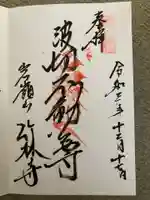 奉拝
令和三年十二月十七日
波切不動尊
岩嶺山
竹林寺